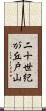 二十世紀が丘戸山